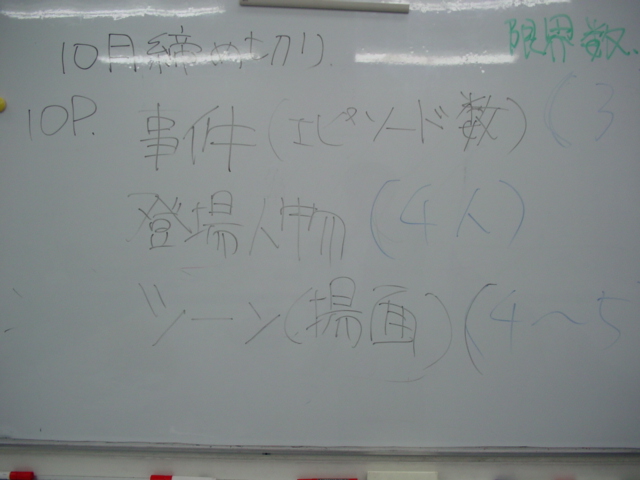 10月締め切り. 限界数、
10P. 事件(エピソード数) (3
登場人物 (4人)
シーン(場面) (4〜5